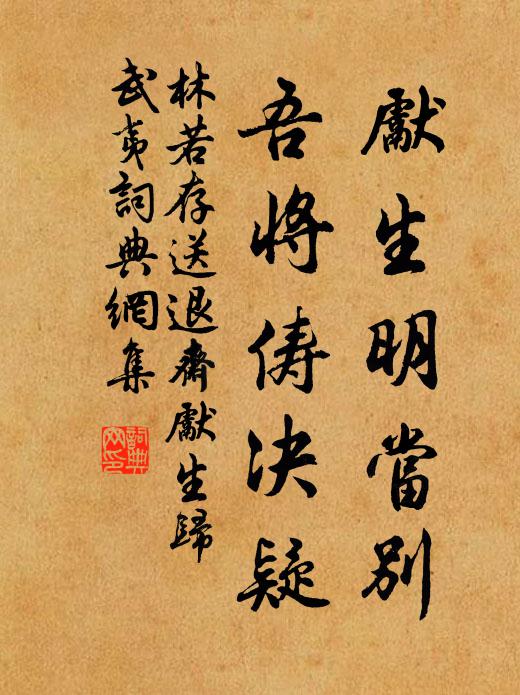 獻生明當別
吾將俦決疑
林若存送退齋獻生歸
武夷詞典網集
詞典網印